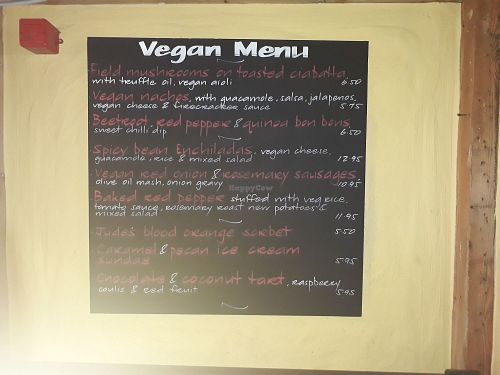 Vegan Menu
Field mushrooms on toasted ciabatta,
with truffle oil, vegan aioli 6.50
Vegan nachos, with guacamole, salsa, jalapenos,
vegan cheese & firecracker sauce 5.75
Beetroot, red pepper & quinoa bon bons,
sweet chilli dip 6.50
Spicy bean Enchiladas, vegan cheese,
guacamole, rice & mixed salad 12.95
Vegan red onion & rosemary sausages,
olive oil mash, onion gravy 10.95
Baked red pepper stuffed with veg rice,
tomato sauce, rosemary roast new potatoes &
mixed salad 11.95
Jude's blood orange sorbet 5.50
Caramel & pecan ice cream
sundae 5.95
Chocolate & coconut tart, raspberry
coulis & red fruit 5.95
HappyCow